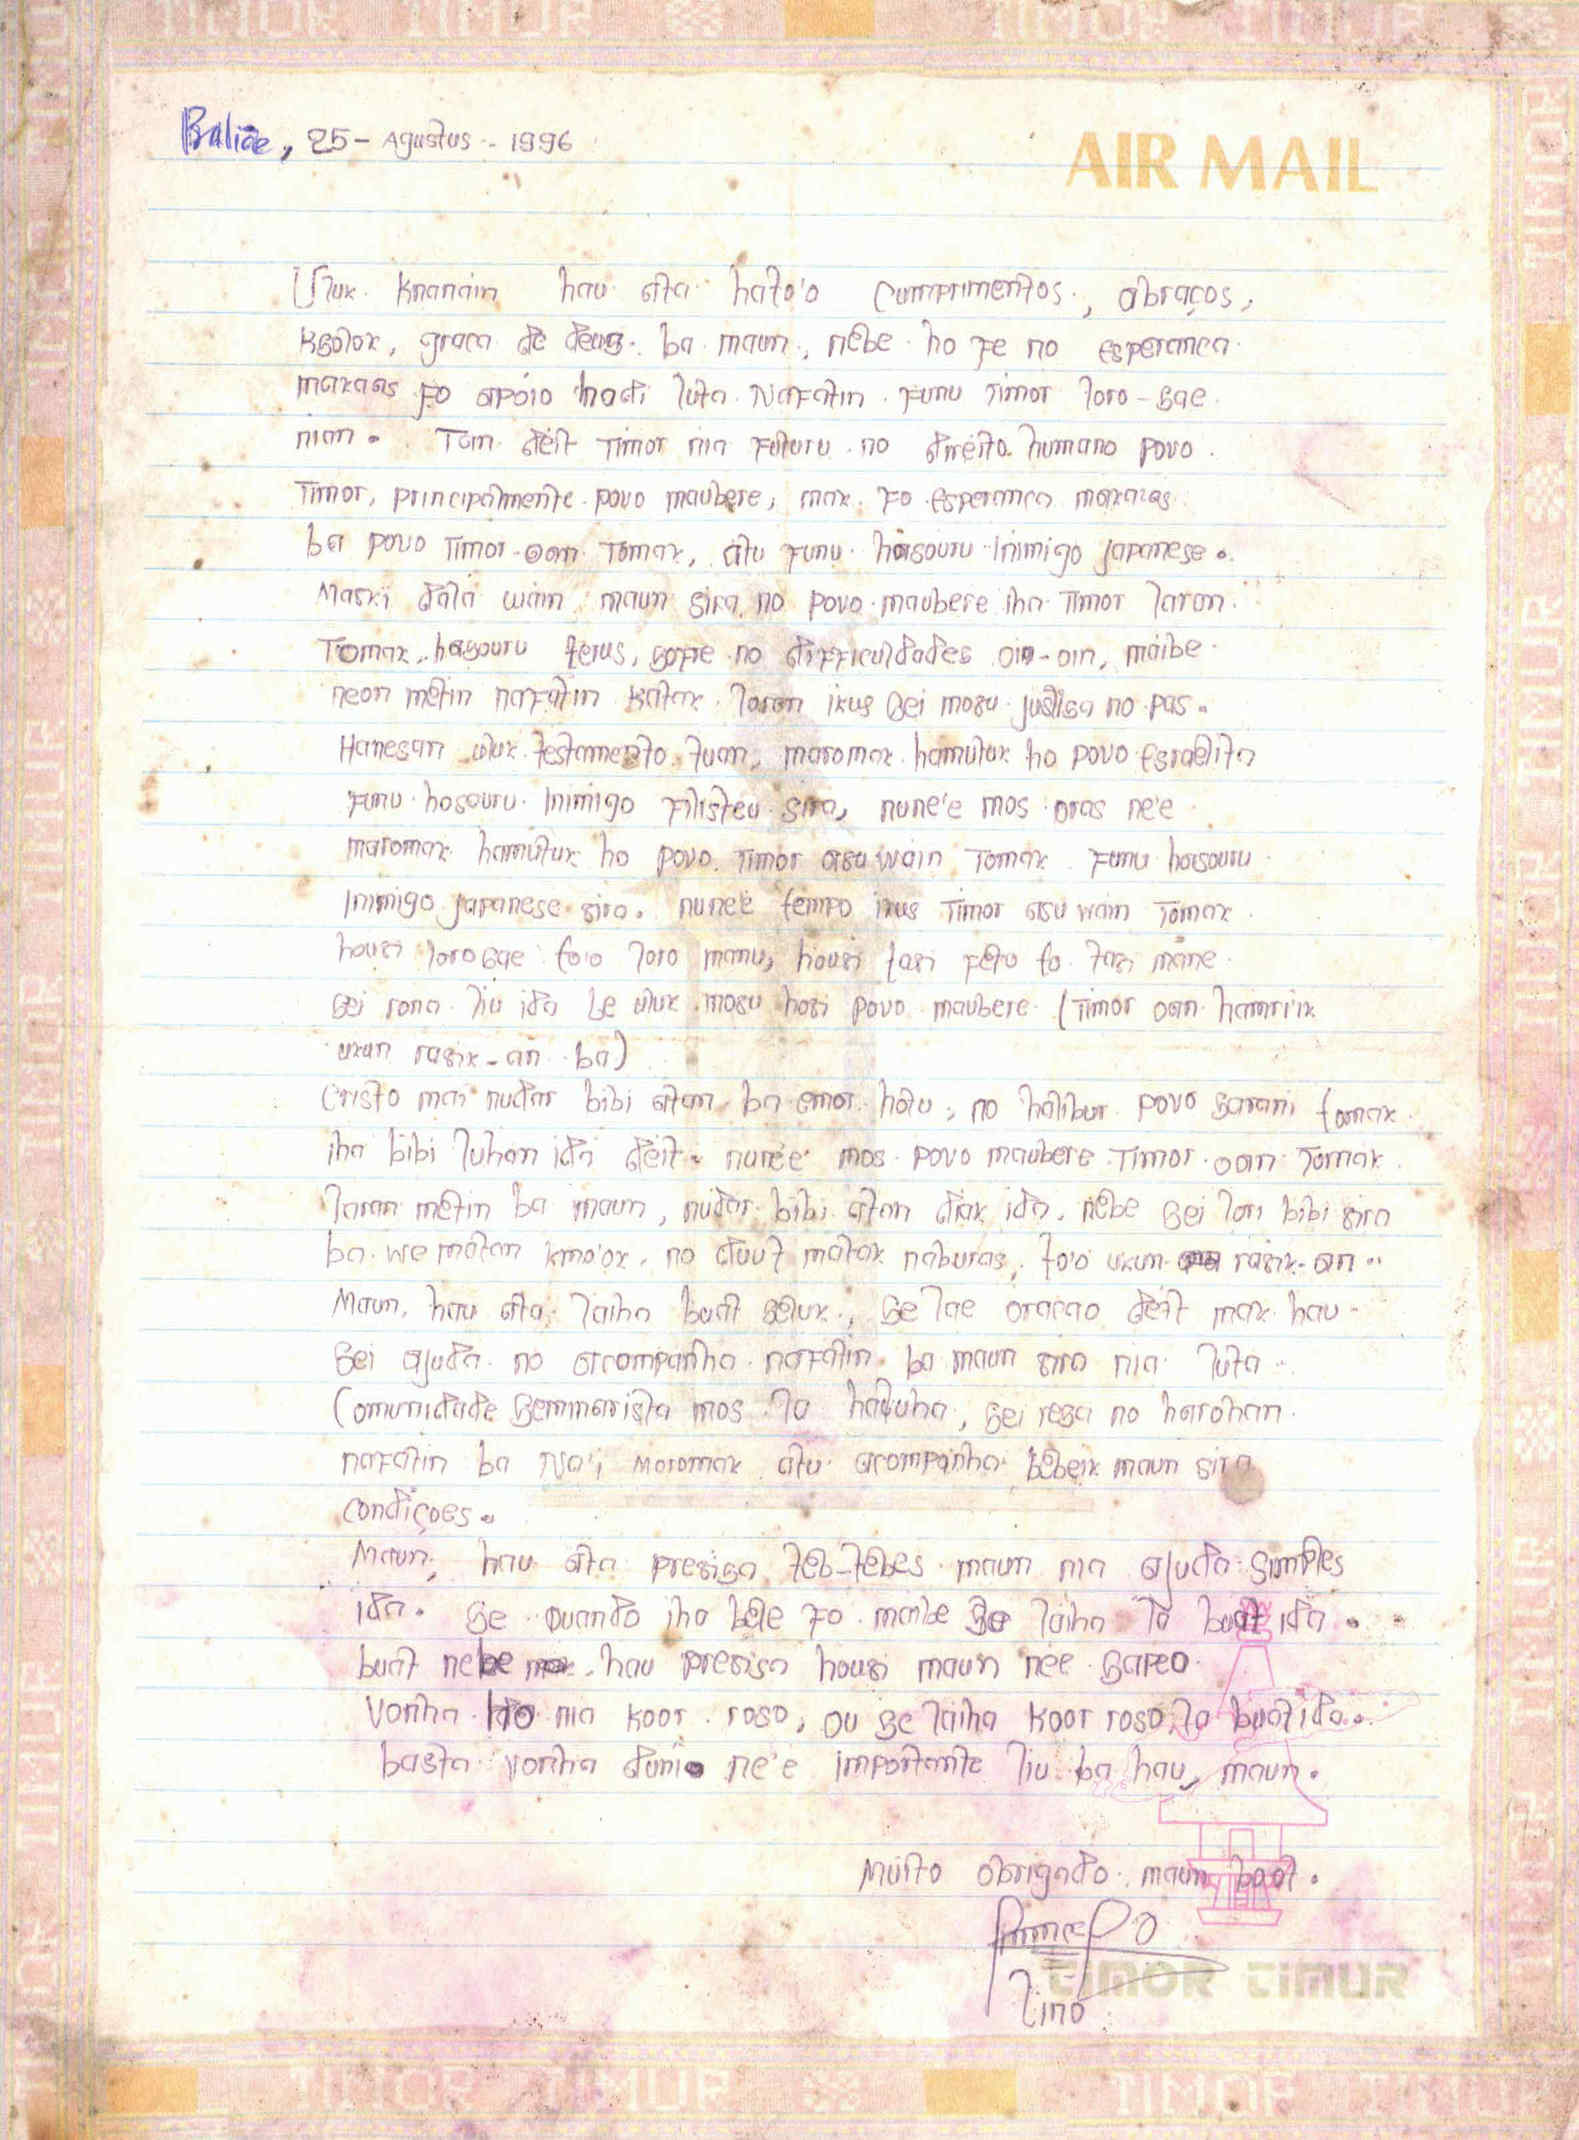 TIMOR TIMUR TIMOR TIMUR
AIR MAIL
Balide, 25 - Agustus - 1996
Uluk Knanain hau ata hato'o Cumprimentos, abraços,
Ksolok, graca de deus ba maun, nebe ho fe no esperanca
makaas fo apoio hodi luta Nafatin funu Timor loro-sae
nian. Tan deit Timor nia futuru no direito humano povo
Timor, principalmente povo maubere, mak fo esperanca makaas
ba povo Timor-oan Tomak, atu funu hasouru Inimigo japanese.
Maski dala wain maun sira no povo maubere iha Timor laran
Tomak, hasouru terus, sofre no difficuldades oin-oin, maibe
neon metin nafatin katak loron ikus sei mosu justisa no pas.
Hanesan uluk testamento tuan, maromak hamutuk ho povo Esraelita
Funu hosouru Inimigo Filisteu sira, nune'e mos oras ne'e
maromak hamutuk ho povo Timor asuwain Tomak Funu hasouru
Inimigo japanese sira. nune'e tempo ikus Timor asuwain Tomak
housi lorosae to'o loro manu, housi tasi feto to tasi mane
sei rona liu ida be uluk mosu hosi povo maubere (Timor oan hamri'ik
ukun rasik-an ba)
Cristo mai nudar bibi atan ba emar hotu, no halibur povo sarani tomak
iha bibi luhan ida deit. nune'e mos povo maubere Timor oan Tomak
laran metin ba maun, nudar bibi atan diak ida, nebe sei lori bibi sira
ba we matan kmo'ok, no duut matak naburas, to'o ukun rasik-an..
Maun, hau ata laiha buat seluk, se lae oracao deit mak hau
sei ajuda no acompanha nafatin ba maun sira nia luta..
Comunidade Seminarista mos la haluha, sei resa no harohan
nafatin ba Na'i Moromak atu acompanha bebeik maun sira
condiçoes.
Maun, hau ata presisa teb-tebes maun nia ajuda simples
ida. se quando iha bele fo maibe se laiha la buat ida.
buat nebe mak hau presisa housi maun nee sapeo
Vonha ho nia koor roso, ou se laiha koor roso la buat ida..
basta vonha duni ne'e importante liu ba hau, maun.
Muito obrigado maun boot.
Lino
TIMOR TIMUR
TIMOR TIMUR TIMOR TIMUR